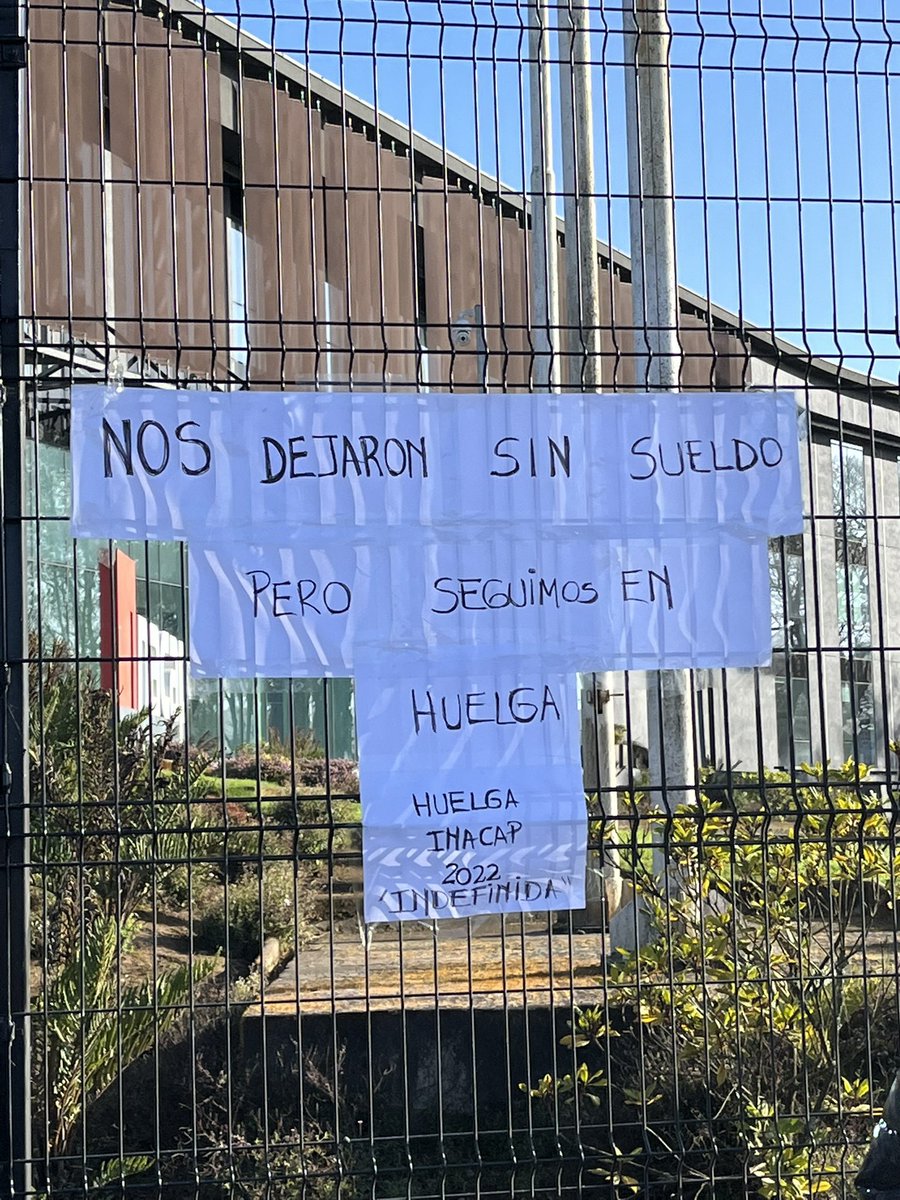 NOS DEJARON SIN SUELDO
PERO SEGUIMOS EN
HUELGA
HUELGA
INACAP
2022
"INDEFINIDA"